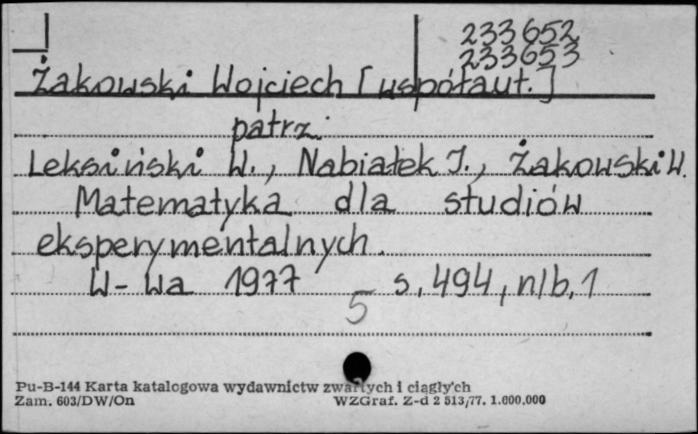 233652
233653
Żakowski Wojciech [współaut.]
patrz:
Leksiński W., Nabiałek J., Żakowski W.
Matematyka dla studiów
eksperymentalnych.
W-wa 1977 s. 494, nlb. 1
5
Pu-B-144 Karta katalogowa wydawnictw zwartych i ciągłych
Zam. 603/DW/On WZGraf. Z-d 2 513/77. 1.600.000